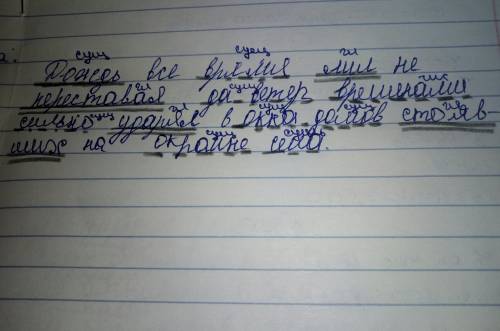 сущ сущ гл
Дождь все время лил не
гл сущ
переставая да ветер временами
сущ гл сущ сущ гл
сильно ударял в окна домов стояв
сущ сущ
ших на окраине села.